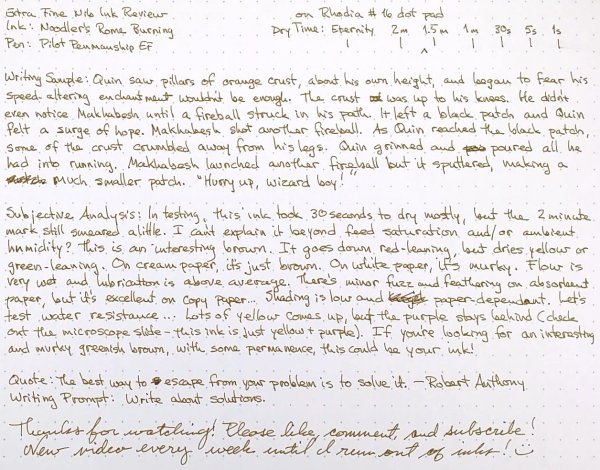 Extra Fine Nib Ink Review on Rhodia #16 dot pad
Ink: Noodler's Rome Burning Dry Time: Eternity 2m 1.5m 1m 30s 5s 1s
Pen: Pilot Penmanship EF
Writing Sample: Quin saw pillars of orange crust, about his own height, and began to fear his
speed-altering enchantment wouldn't be enough. The crust was up to his knees. He didn't
even notice Makhabesh until a fireball struck in his path. It left a black patch and Quin
felt a surge of hope. Makhabesh shot another fireball. As Quin reached the black patch,
some of the crust crumbled away from his legs. Quin grinned and poured all he
had into running. Makhabesh launched another fireball but it sputtered, making a
much smaller patch. "Hurry up, wizard boy!"
Subjective Analysis: In testing, this ink took 30 seconds to dry mostly, but the 2 minute
mark still smeared a little. I can't explain it beyond feed saturation and/or ambient
humidity? This is an interesting brown. It goes down red-leaning, but dries yellow or
green-leaning. On cream paper, it's just brown. On white paper, it's murky. Flow is
very wet and lubrication is above average. There's minor fuzz and feathering on absorbent
paper, but it's excellent on copy paper... Shading is low and paper-dependent. Let's
test water resistance... Lots of yellow comes up, but the purple stays behind (check
out the microscope slide - this ink is just yellow + purple). If you're looking for an interesting
and murky greenish brown, with some permanence, this could be your ink!
Quote: The best way to escape from your problem is to solve it. - Robert Anthony
Writing Prompt: Write about solutions.
Thanks for watching! Please like, comment, and subscribe!
New video every week until I run out of inks! :)